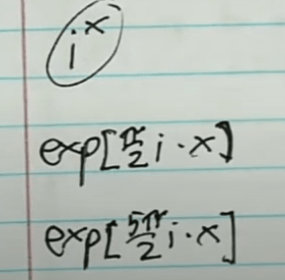 i^x
exp[π/2 i · x]
exp[5π/2 i · x]